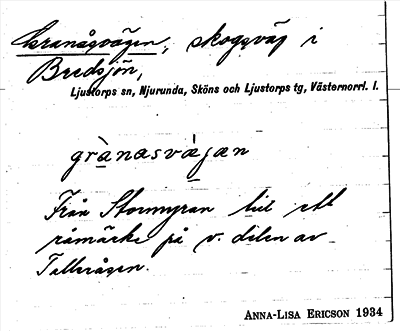 Granåsvägen, skogsväg i
Bredsjön,
Ljustorps sn, Njurunda, Sköns och Ljustorps tg, Västernorrl. l.
grànasvä̀gan
Från Stormyran till ett
råmärke på v. delen av
Tallråsen.
ANNA-LISA ERICSON 1934